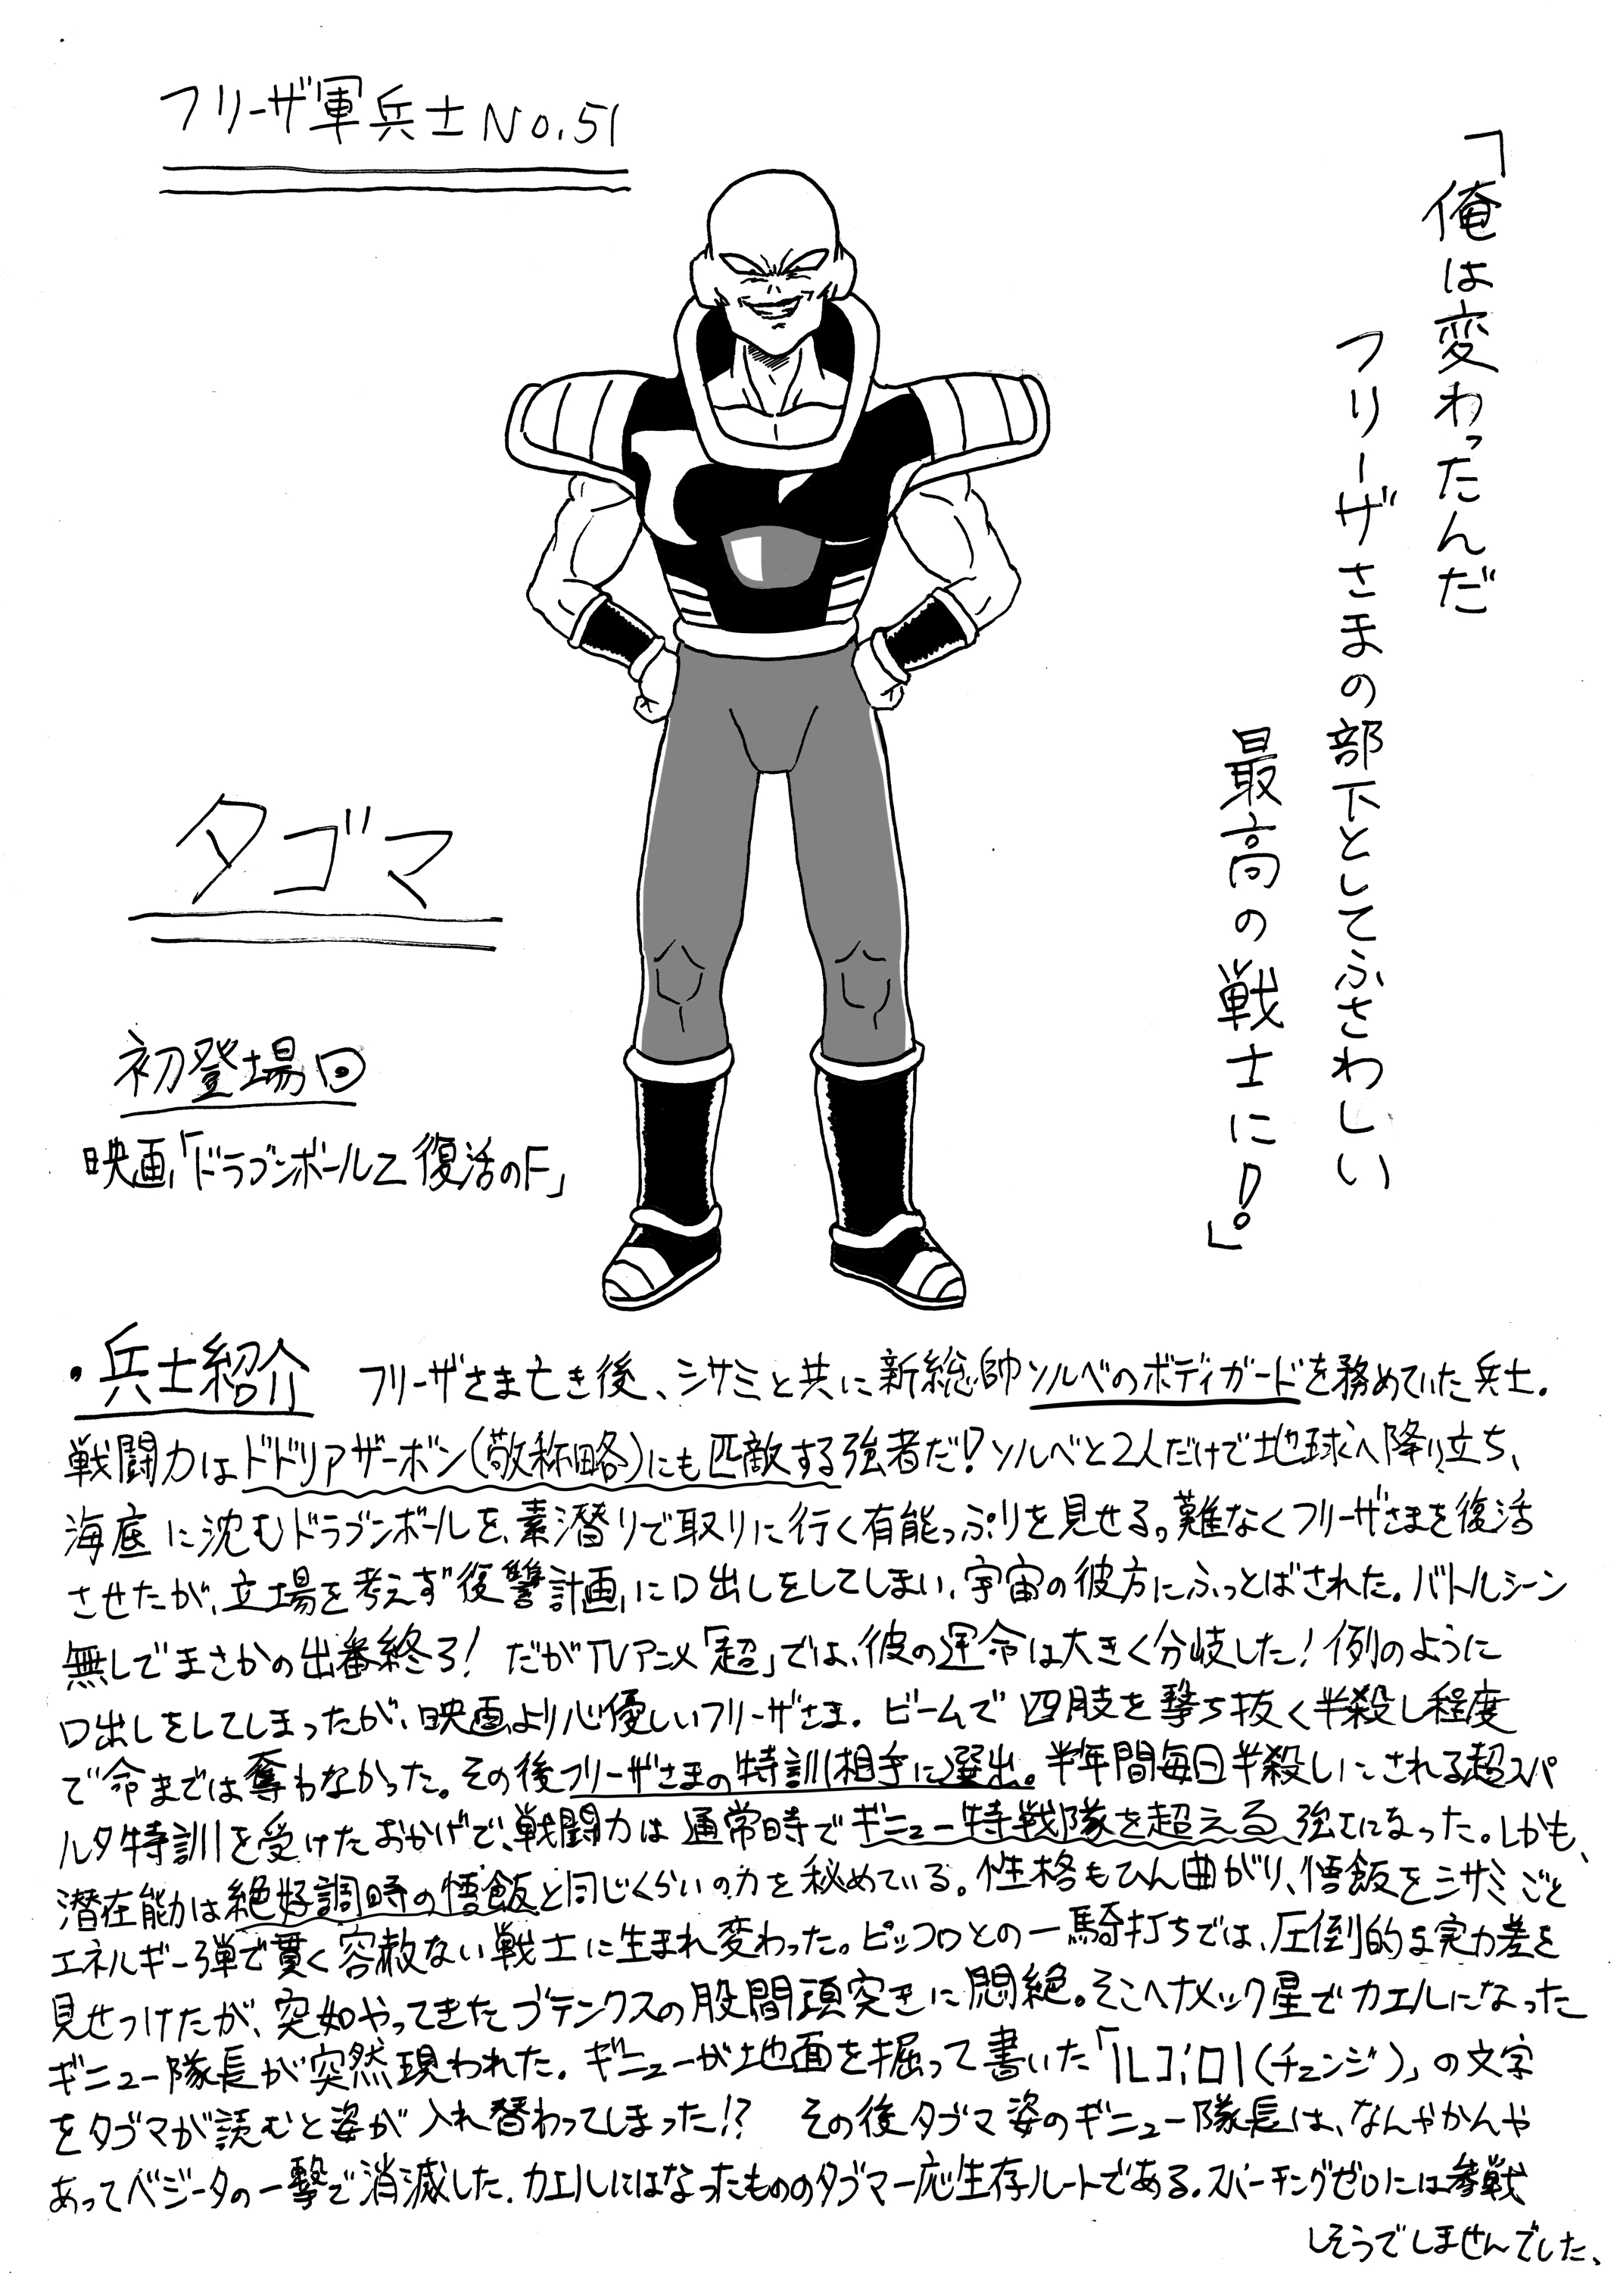 フリーザ軍兵士No.51
「俺は変わったんだ
フリーザさまの部下としてふさわしい
最高の戦士に!」
タゴマ
初登場回
映画「ドラゴンボールZ 復活のF」
・兵士紹介 フリーザさま亡き後、シサミと共に新総帥ソルベのボディガードを務めていた兵士.
戦闘力はドドリアザーボン(敬称略)にも匹敵する強者だ!ソルベと2人だけで地球へ降り立ち、
海底に沈むドラゴンボールを、素潜りで取りに行く有能っぷりを見せる。難なくフリーザさまを復活
させたが、立場を考えず復讐計画に口出しをしてしまい、宇宙の彼方にふっとばされた。バトルシーン
無しでまさかの出番終了! だがTVアニメ「超」では、彼の運命は大きく分岐した!例のように
口出しをしてしまったが、映画より心優しいフリーザさま. ビームで四肢を撃ち抜く半殺し程度
で命までは奪わなかった。その後フリーザさまの特訓相手に選出。半年間毎日半殺しにされる超スパ
ルタ特訓を受けたおかげで、戦闘力は通常時でギニュー特戦隊を超える強さになった。しかも、
潜在能力は絶好調時の悟飯と同じくらいの力を秘めている。性格もひん曲がり、悟飯をシサミごと
エネルギー弾で貫く容赦ない戦士に生まれ変わった。ピッコロとの一騎打ちでは、圧倒的な実力差を
見せつけたが、突如やってきたゴテンクスの股間頭突きに悶絶。そこへナメック星でカエルになった
ギニュー隊長が突然現われた. ギニューが地面を掘って書いた「」(チェンジ)」の文字
をタゴマが読むと姿が入れ替わってしまった!? その後タゴマ姿のギニュー隊長は、なんやかんや
あってベジータの一撃で消滅した. カエルにはなったもののタゴマ一応生存ルートである. スパーキングゼロには参戦
しそうでしませんでした、